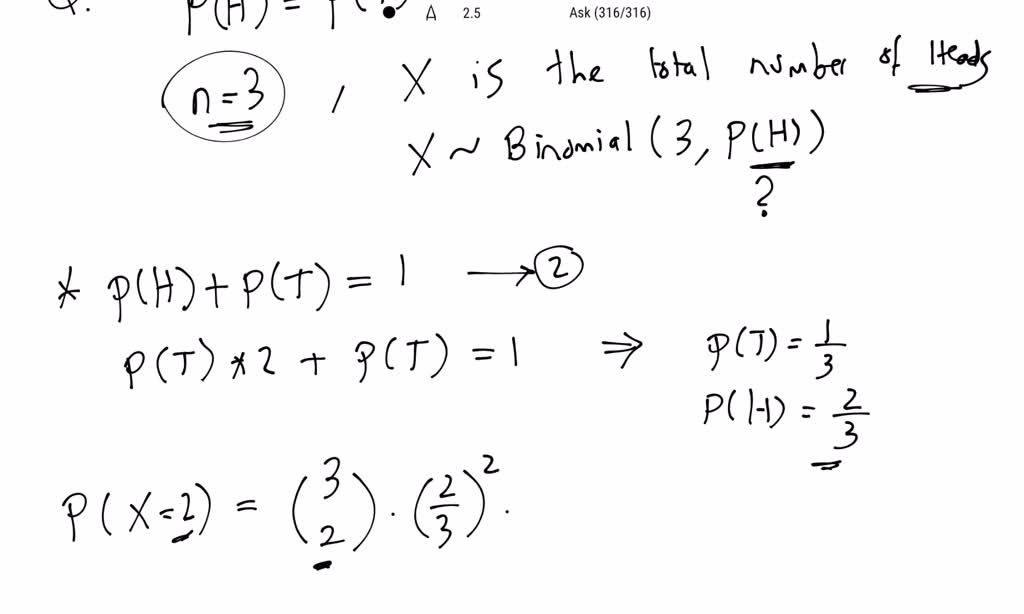 P(H) =
Δ 2.5 Ask (316/316)
n = 3 , X is the total number of Heads
X ~ Binomial (3, P(H))
?
* P(H) + P(T) = 1 → 2
P(T) * 2 + P(T) = 1 ⇒ P(T) = 1/3
P(H) = 2/3
P(X = 2) = (3 2) · (2/3)² ·